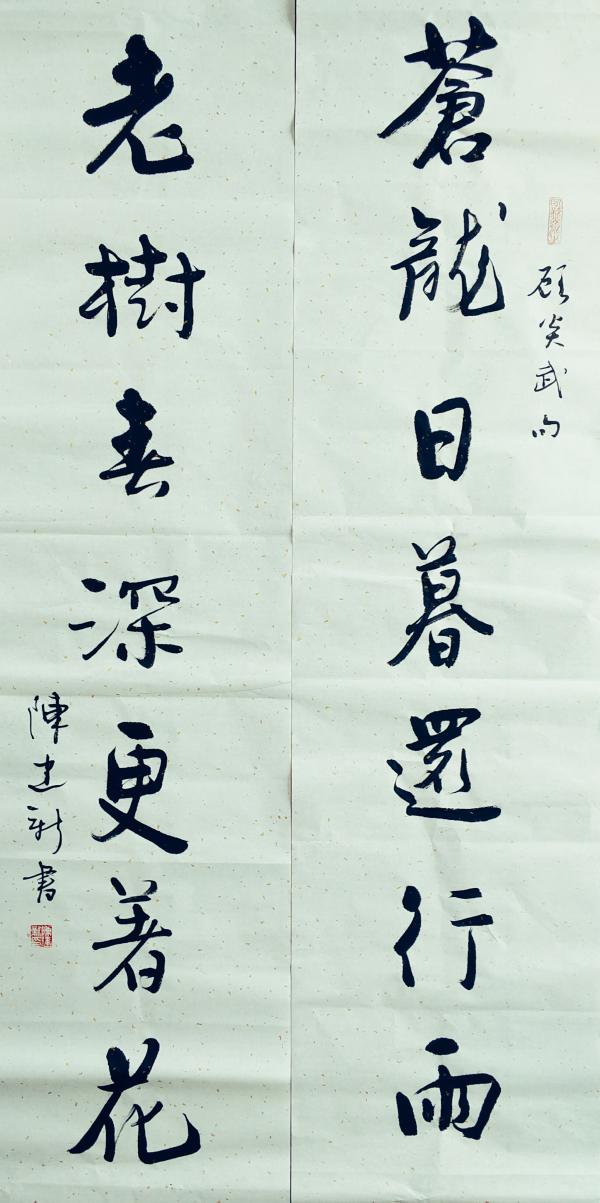 蒼龍日暮還行雨
顧炎武句
老樹春深更著花
陳建新書